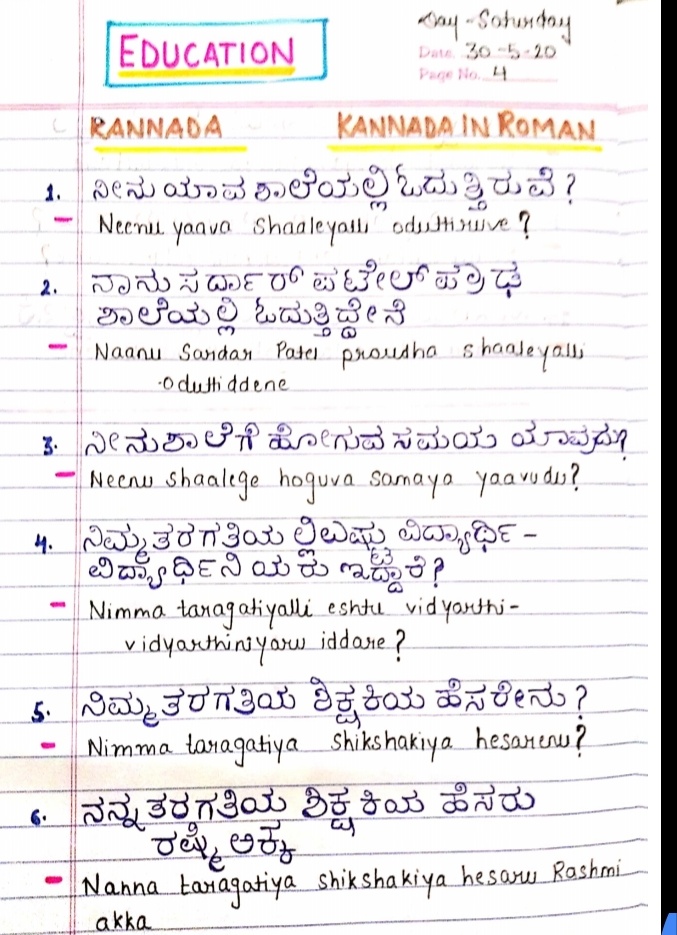 Day - Saturday
EDUCATION
Date. 30-5-20
Page No. 4
KANNADA KANNADA IN ROMAN
1. ನೀನು ಯಾವ ಶಾಲೆಯಲ್ಲಿ ಓದುತ್ತಿರುವೆ?
- Neenu yaava shaaleyalli oduttiruve?
2. ನಾನು ಸರ್ದಾರ್ ಪಟೇಲ್ ಪ್ರಾಢ
ಶಾಲೆಯಲ್ಲಿ ಓದುತ್ತಿದ್ದೇನೆ
- Naanu Sardar Patel proudha shaaleyalli
oduttiddene
3. ನೀನು ಶಾಲೆಗೆ ಹೋಗುವ ಸಮಯ ಯಾವುದು?
- Neenu shaalege hoguva samaya yaavudu?
4. ನಿಮ್ಮ ತರಗತಿಯಲ್ಲಿ ಎಷ್ಟು ವಿದ್ಯಾರ್ಥಿ -
ವಿದ್ಯಾರ್ಥಿನಿಯರು ಇದ್ದಾರೆ?
- Nimma taragatiyalli eshtu vidyarthi-
vidyarthiniyaru iddare?
5. ನಿಮ್ಮ ತರಗತಿಯ ಶಿಕ್ಷಕಿಯ ಹೆಸರೇನು?
- Nimma taragatiya shikshakiya hesarenu?
6. ನನ್ನ ತರಗತಿಯ ಶಿಕ್ಷಕಿಯ ಹೆಸರು
ರಷ್ಮಿ ಅಕ್ಕ
- Nanna taragatiya shikshakiya hesaru Rashmi
akka